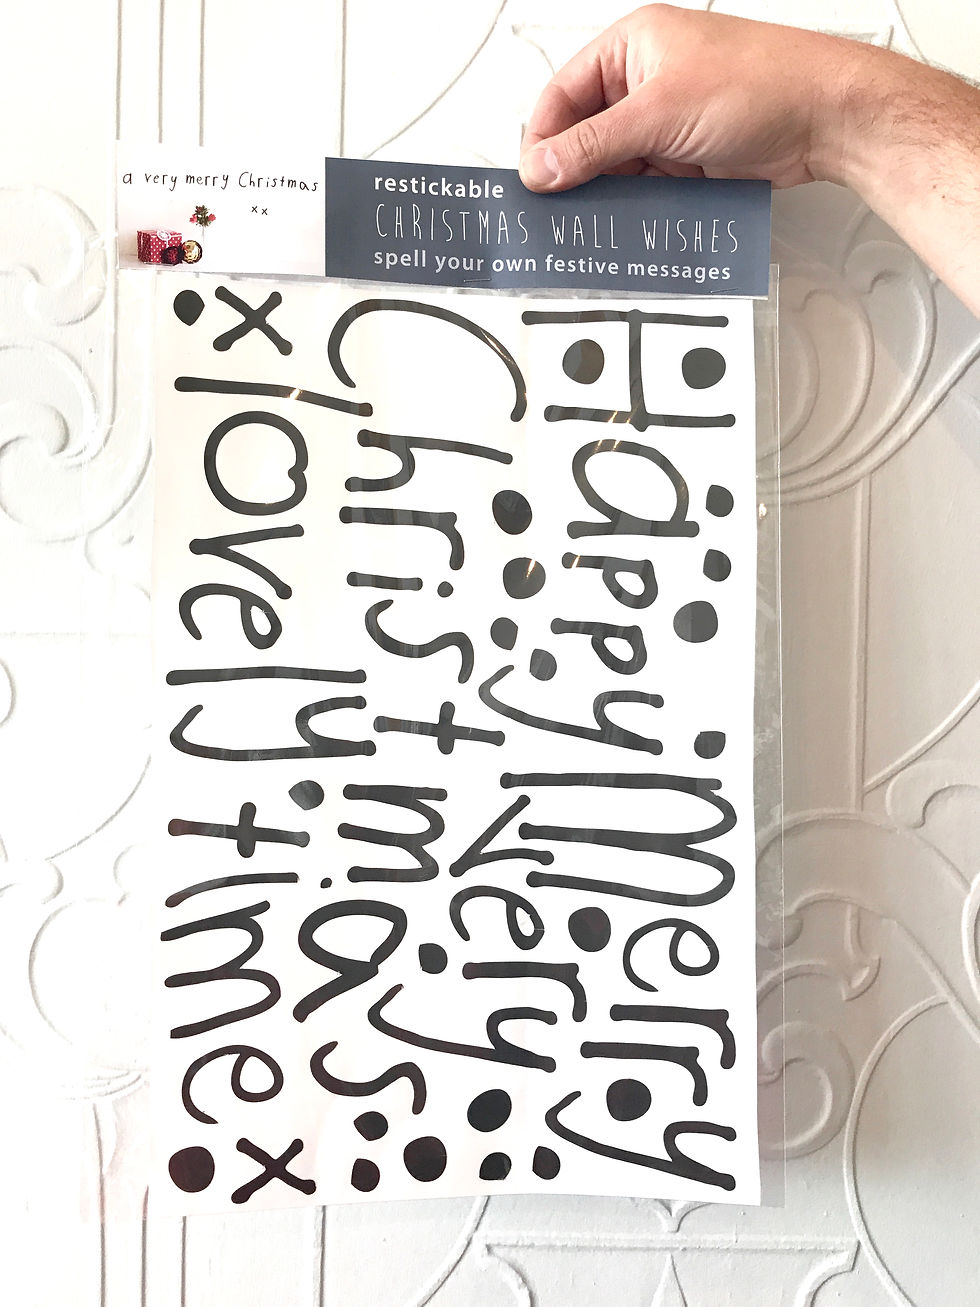 a very merry Christmas
xx
restickable
CHRISTMAS WALL WISHES
spell your own festive messages
Happy Merry
Very
Christmas
x lovely time x